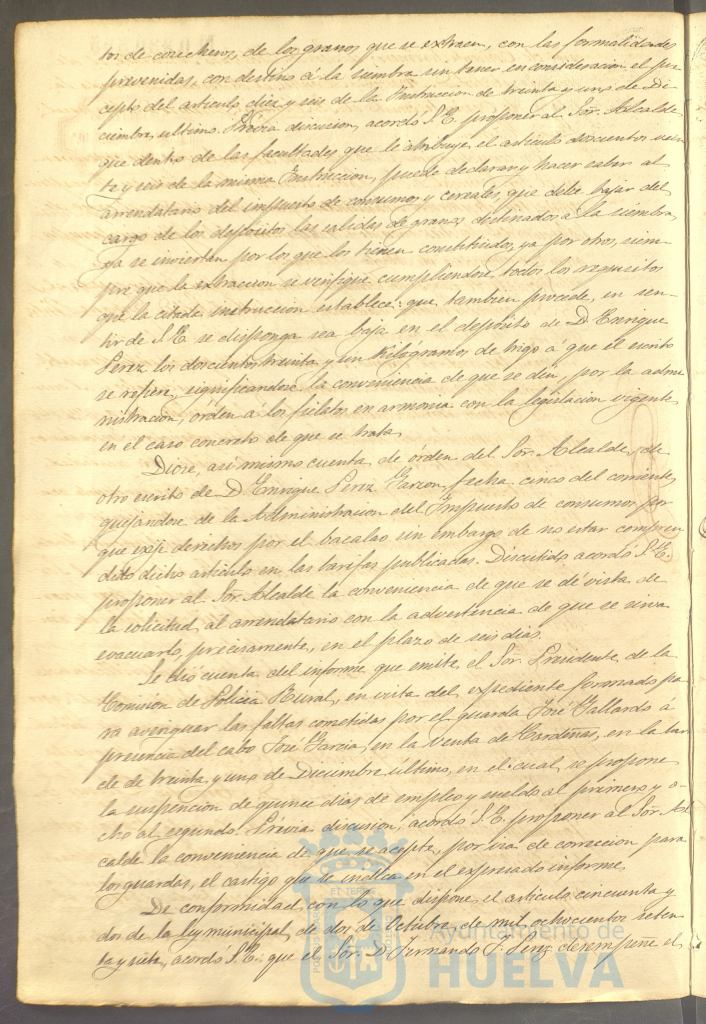 tos de cosecheros, de los granos que se extraen, con las formalidades
prevenidas, con destino á la siembra sin tener en consideracion el pre-
cepto del articulo diez y seis de la Instruccion de treinta y uno de Di-
ciembre último. Prévia discusion, acordó S.E. proponer al Sor. Alcalde
que dentro de las facultades que le atribuye el articulo doscientos vein-
te y seis de la misma Instruccion, puede declarar y hacer saber al
arrendatario del impuesto de consumos y cereales, que debe bajar del
cargo de los depósitos las salidas de granos destinados a la siembra,
ya se inviertan por los que los tienen constituidos, ya por otros, siem-
pre que la extraccion se verifique cumpliendose todos los requisitos
que la citada instruccion establece: que tambien procede, en sen-
tir de S.E. se disponga sea baja en el depósito de D. Enrique
Perez los doscientos treinta y un kilógramos de trigo a que el escrito
se refiere, significandose la conveniencia de que se dén, por la admi-
nistracion, órden á los fielatos en armonia con la legislacion vigente
en el caso concreto de que se trata.
Dióse, asi mismo cuenta de órden del Sor. Alcalde, de
otro escrito de D. Enrique Perez Garzon, fecha cinco del corriente
quejandose de la Administracion del Impuesto de consumos por
que exije derechos por el bacalao sin embargo de no estar compren
dido dicho articulo en las tarifas publicadas. Discutido acordó S.E.
proponer al Sor. Alcalde la conveniencia de que se dé vista de
la solicitud al arrendatario con la advertencia de que se sirva
evacuarlo, precisamente, en el plazo de seis dias.
Se dió cuenta del informe que emite el Sor. Presidente de la
Comision de Policia Rural, en vista del expediente formado pa-
ra averiguar las faltas cometidas por el guarda José Gallardo á
presencia del cabo José Garcia, en la venta de Cardenas, en la tar
de de treinta y uno de Diciembre último, en el cual se propone
la suspencion de quince dias de empleo y sueldo al primero y o-
cho al segundo. Prévia discusion, acordó S.E. proponer al Sor. Al
calde la conveniencia de que se acepte, por via de correccion para
los guardas, el castigo que se indica en el expresado informe.
De conformidad con lo que dispone el articulo cincuenta y
dos de la ley municipal de dos de Octubre de mil ochocientos seten-
ta y siete, acordó S.E. que el Sor. D. Fernando F. Perez desempeñe el
Ayuntamiento de
HUELVA